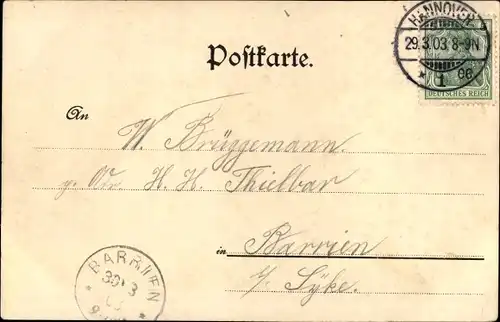 HANNOVER
29.3.03 8-9N
* 1 *
DEUTSCHES REICH
Postkarte.
An
W. Brüggemann.
H. H. Thielbar
in Barrien
b/ Syke.
BARRIEN
30/3